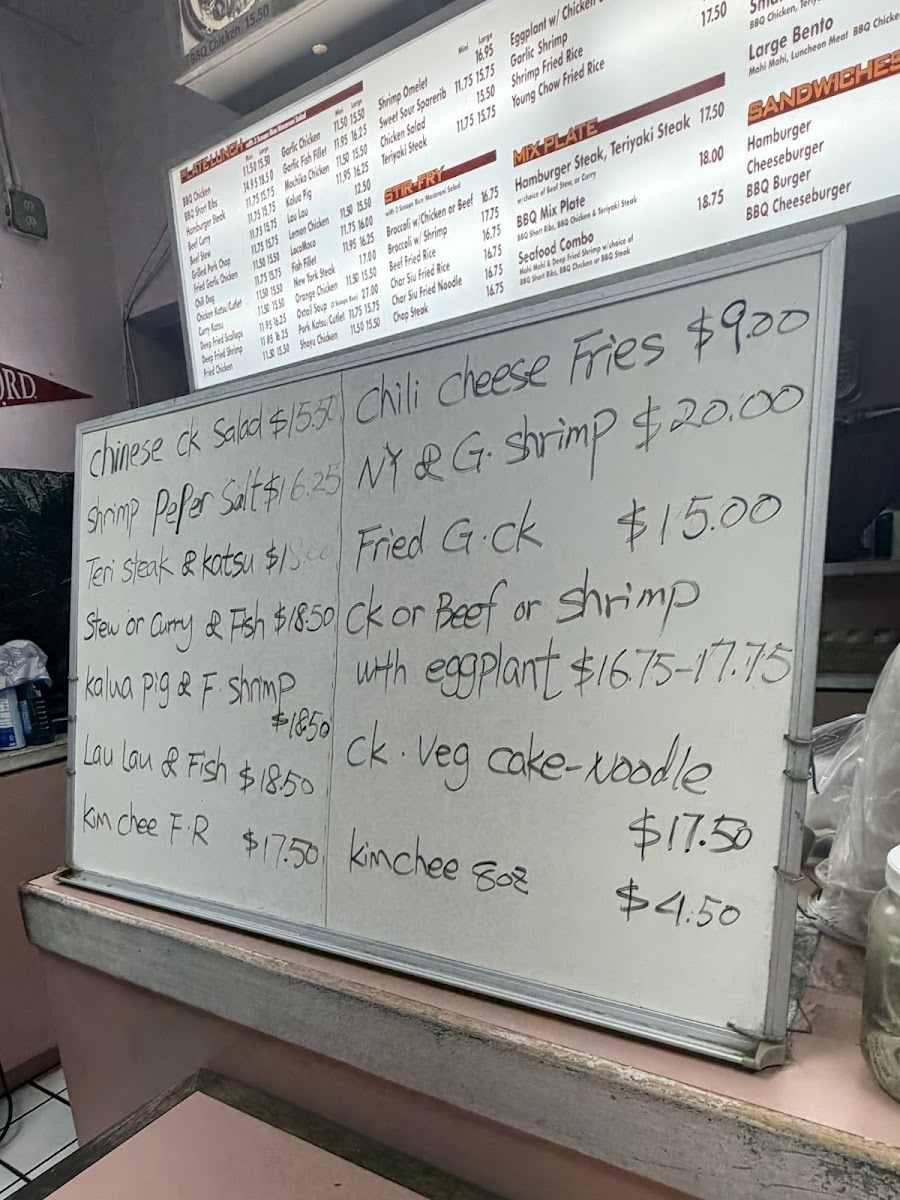 BBQ Chicken 15.50
PLATE LUNCH with 2 Scoops Rice Macaroni Salad
Mini Large
BBQ Chicken 11.50 15.50
BBQ Short Ribs 14.95 18.50
Hamburger Steak 11.75 15.75
Beef Curry 11.75 15.75
Beef Stew 11.75 15.75
Grilled Pork Chop 11.75 15.75
Fried Garlic Chicken 11.50 15.50
Chili Dog
Chicken Katsu/Cutlet 11.50 15.50
Curry Katsu
Deep Fried Scallops 11.95 16.25
Deep Fried Shrimp 11.85 16.25
Fried Chicken 11.50 15.50
Mini Large
Garlic Chicken 11.50 15.50
Garlic Fish Fillet 11.95 16.25
Mochiko Chicken 11.50 15.50
Kalua Pig 11.95 16.25
Lau Lau 12.50
Lemon Chicken 11.50 15.50
LocoMoco 11.75 16.00
Fish Fillet 11.95 16.25
New York Steak 17.00
Orange Chicken 11.50 15.50
Oxtail Soup (2 Scoops Rice) 27.00
Pork Katsu/Cutlet 11.75 15.75
Shoyu Chicken 11.50 15.50
Mini Large
Shrimp Omelet 16.95
Sweet Sour Sparerib 11.75 15.75
Chicken Salad 15.50
Teriyaki Steak 11.75 15.75
STIR-FRY
with 2 Scoops Rice/Macaroni Salad
Broccoli w/Chicken or Beef 16.75
Broccoli w/ Shrimp 17.75
Beef Fried Rice 16.75
Char Siu Fried Rice 16.75
Char Siu Fried Noodle 16.75
Chop Steak 16.75
Eggplant w/ Chicken
Garlic Shrimp 17.50
Shrimp Fried Rice
Young Chow Fried Rice
MIX PLATE
Hamburger Steak, Teriyaki Steak 17.50
w/choice of Beef Stew, or Curry
BBQ Mix Plate 18.00
BBQ Short Ribs, BBQ Chicken & Teriyaki Steak
Seafood Combo 18.75
Mahi Mahi & Deep Fried Shrimp w/choice of
BBQ Short Ribs, BBQ Chicken or BBQ Steak
BBQ Chicken,
Large Bento
Mahi Mahi, Luncheon Meat, BBQ
SANDWICHES
Hamburger
Cheeseburger
BBQ Burger
BBQ Cheeseburger
Chinese ck Salad $15.50
Shrimp Peper Salt $16.25
Teri steak & katsu
Stew or Curry & Fish $18.50
kalua pig & F. shrimp
$18.50
Lau Lau & Fish $18.50
kim chee F.R $17.50
Chili cheese Fries $9.00
NY & G. shrimp $20.00
Fried G.ck $15.00
Ck or Beef or shrimp
with eggplant $16.75-17.75
Ck. Veg cake-Noodle
$17.50
kimchee 8oz
$4.50